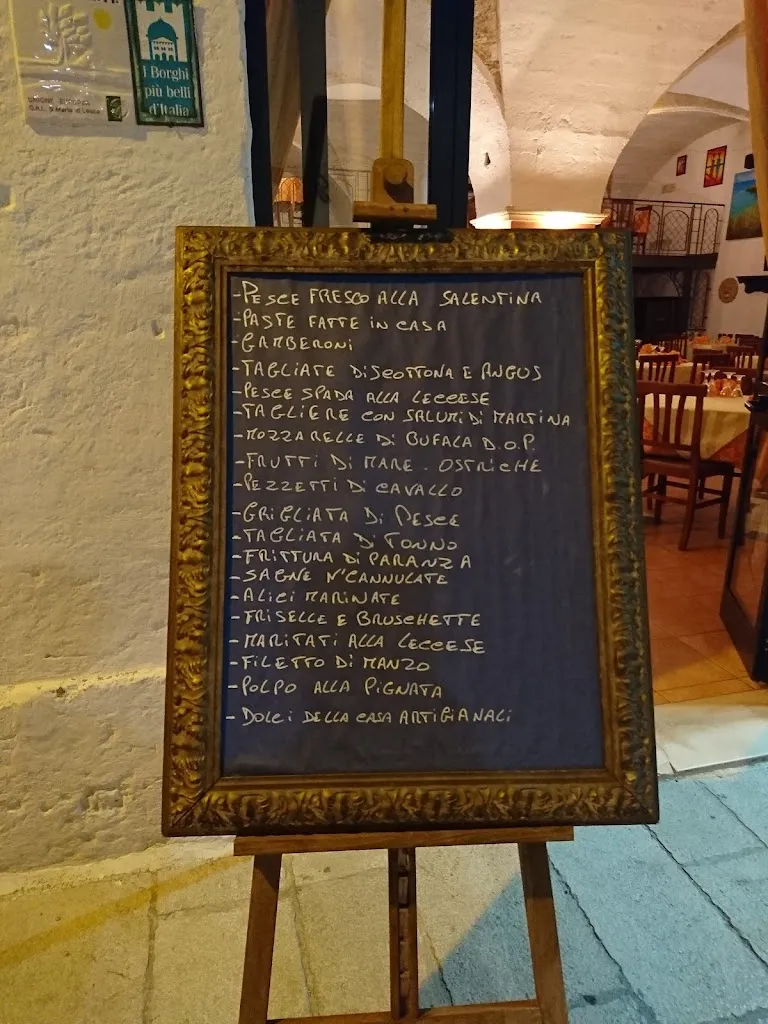 UNIONE EUROPEA
I Borghi
più belli
d'Italia
-PESCE FRESCO ALLA SALENTINA
-PASTE FATTE IN CASA
-GAMBERONI
-TAGLIATE DI SCOTTONA E ANGUS
-PESCE SPADA ALLA LECCESE
-TAGLIERE CON SALUMI DI MARTINA
-MOZZARELLE DI BUFALA D.O.P.
-FRUTTI DI MARE - OSTRICHE
-PEZZETTI DI CAVALLO
-GRIGLIATA DI PESCE
-TAGLIATA DI TONNO
-FRITTURA DI PARANZA
-SAGNE N'CANNULATE
-ALICI MARINATE
-FRISELLE E BRUSCHETTE
-MARITATI ALLA LECCESE
-FILETTO DI MANZO
-POLPO ALLA PIGNATA
- DOLCI DELLA CASA ARTIGIANALI